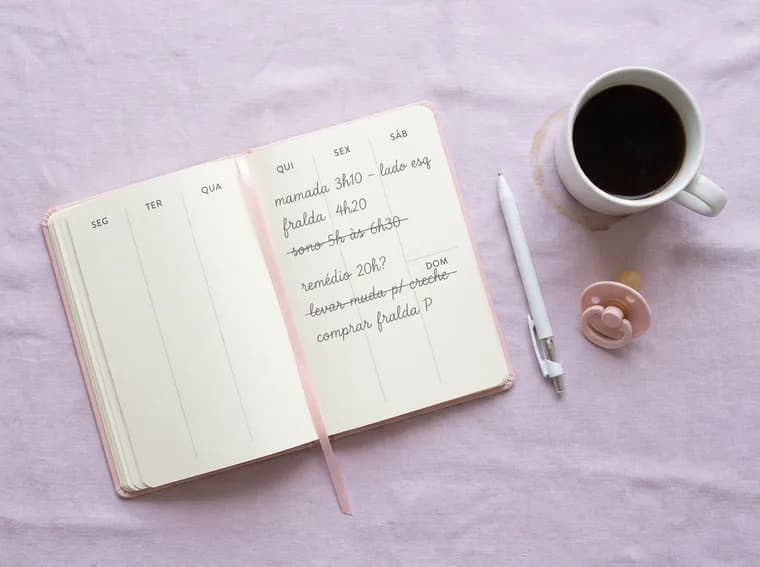 SEG
TER
QUA
QUI
SEX
SÁB
mamada 3h10 – lado esq
fralda 4h20
sono 5h às 6h30
remédio 20h?
DOM
levar muda p/ creche
comprar fralda P